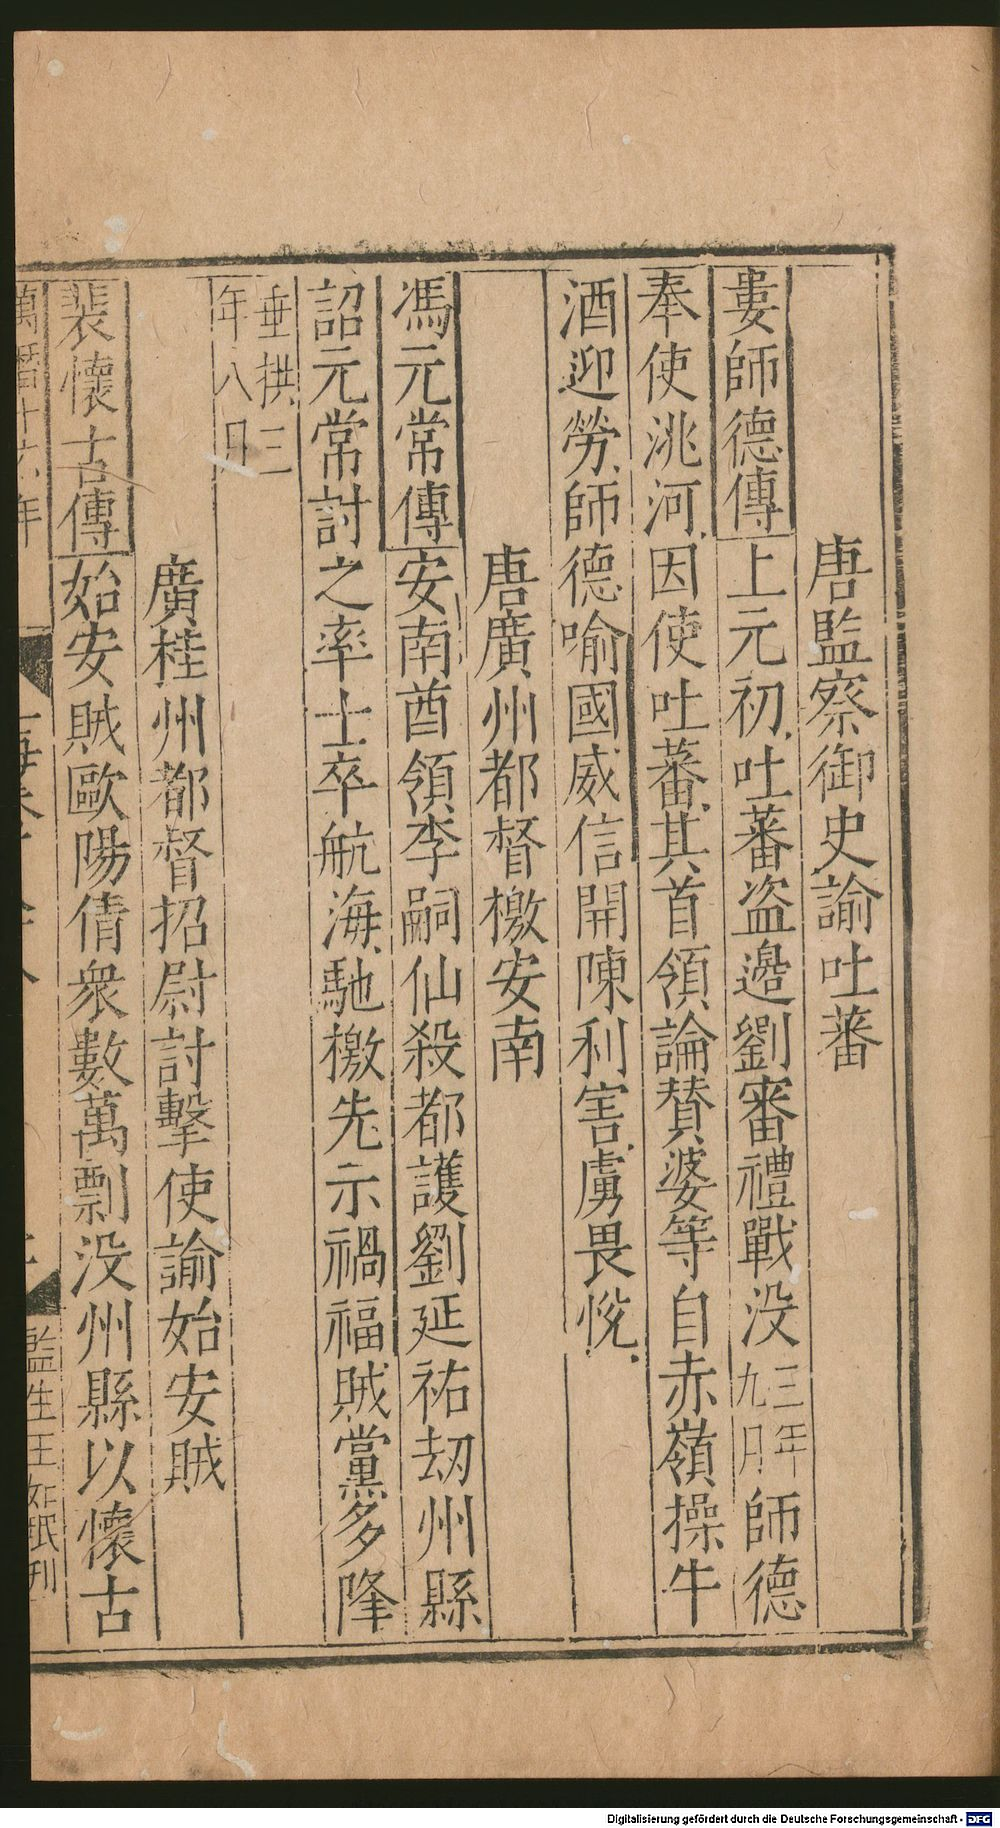 唐監察御史諭吐蕃
婁師德傳上元初吐蕃盜邉劉審禮戰没三年九月師德
奉使洮河因使吐蕃其首領論贊婆等自赤嶺操牛
酒迎勞師德喻國威信開陳利害虜畏悅
唐廣州都督檄安南
馮元常傳安南酋領李嗣仙殺都護劉延祐刼州縣
詔元常討之率士卒航海馳檄先示禍福賊黨多降
垂拱三年八月
廣桂州都督招尉討擊使諭始安賊
裴懷古傳始安賊歐陽倩衆數萬剽没州縣以懷古
萬曆十六年
監生王如珉刋
Digitalisierung gefördert durch die Deutsche Forschungsgemeinschaft - DFG